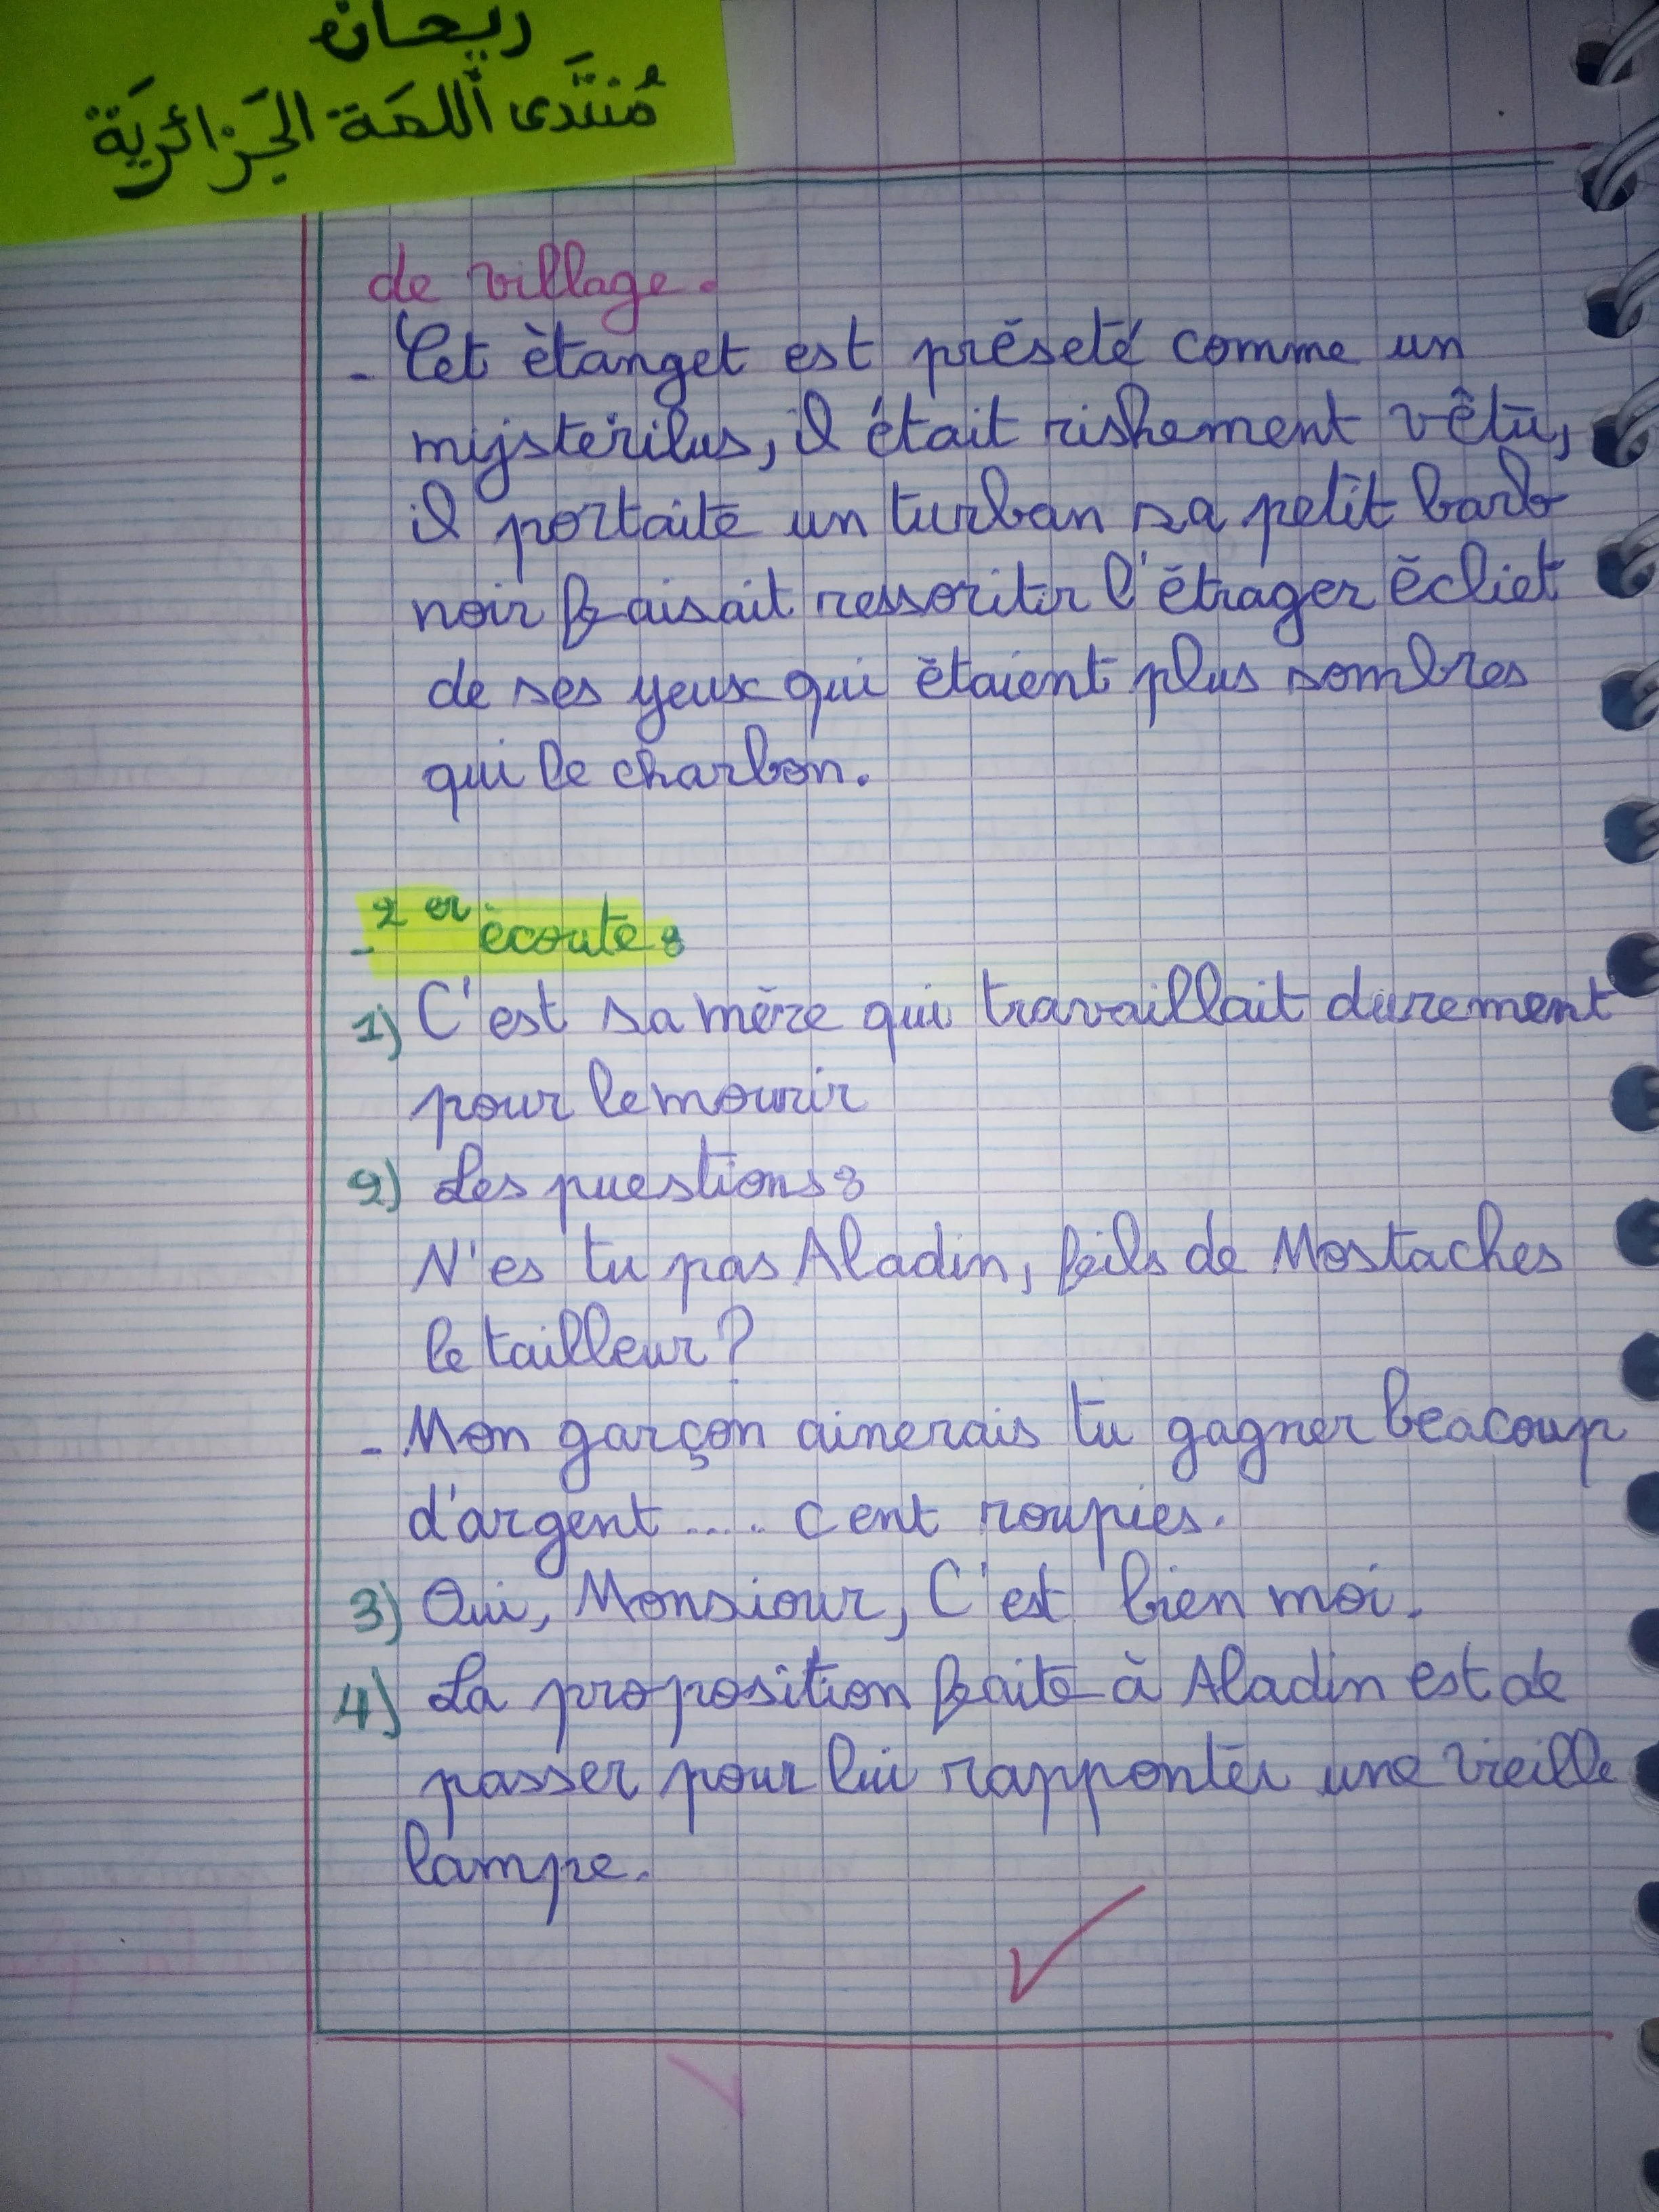 ريحان
مُنتَدى اللمَة الجَزائريَة
de village.
- Cet ètanget est préseté comme un
mijsterilus, il était rishement vêtu,
il portaite un turban sa petit barb
noir faisait ressoritir l'étrager écliet
de ses yeux qui étaient plus sombres
qui le charbon.
- 2er écoute :
1) C'est sa mère qui travaillait durement
pour le mourir
2) Les puestions :
N'es tu pas Aladin, feils de Mostaches
le tailleur ?
- Mon garçon ainerais tu gagner beacoup
d'argent .... cent roupies.
3) Oui, Monsiour, C'est bien moi.
4) La proposition faite à Aladin est de
passer pour lui rapponter une vieille
lampe.